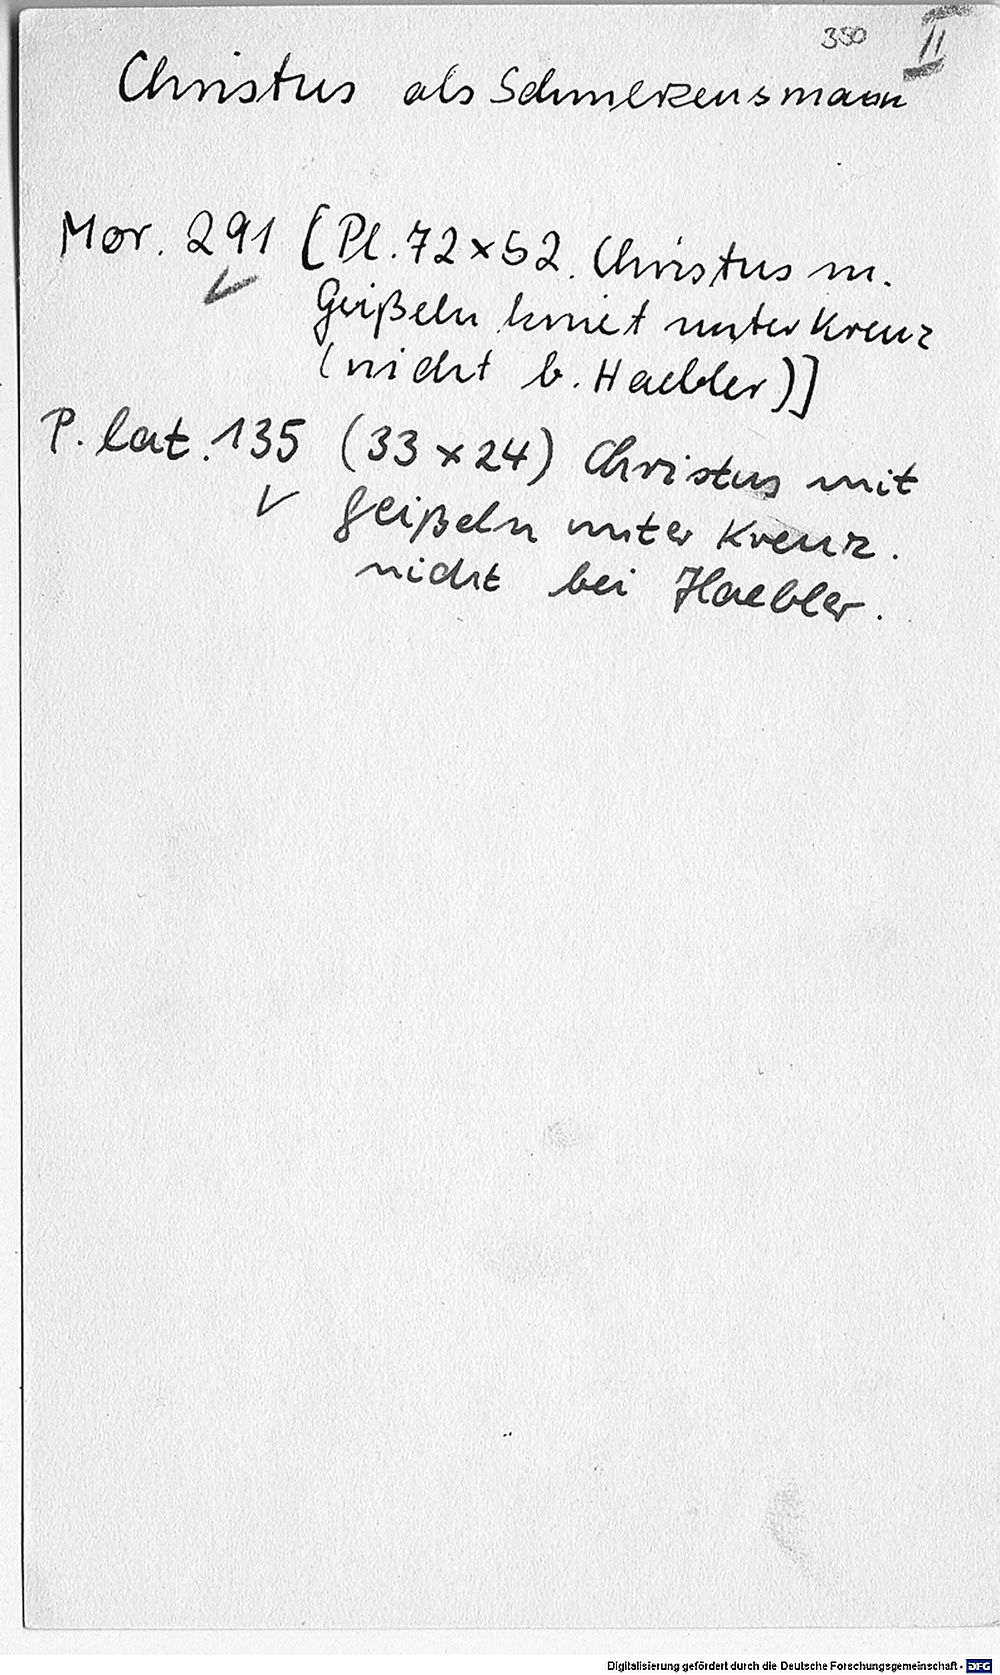 350 II
Christus als Schmerzensmann
Mor. 291 [Pl. 72 x 52. Christus m.
Geißeln kniet unter Kreuz
(nicht b. Haebler)]
P. lat. 135 (33 x 24) Christus mit
Geißeln unter Kreuz.
nicht bei Haebler.
Digitalisierung gefördert durch die Deutsche Forschungsgemeinschaft - DFG